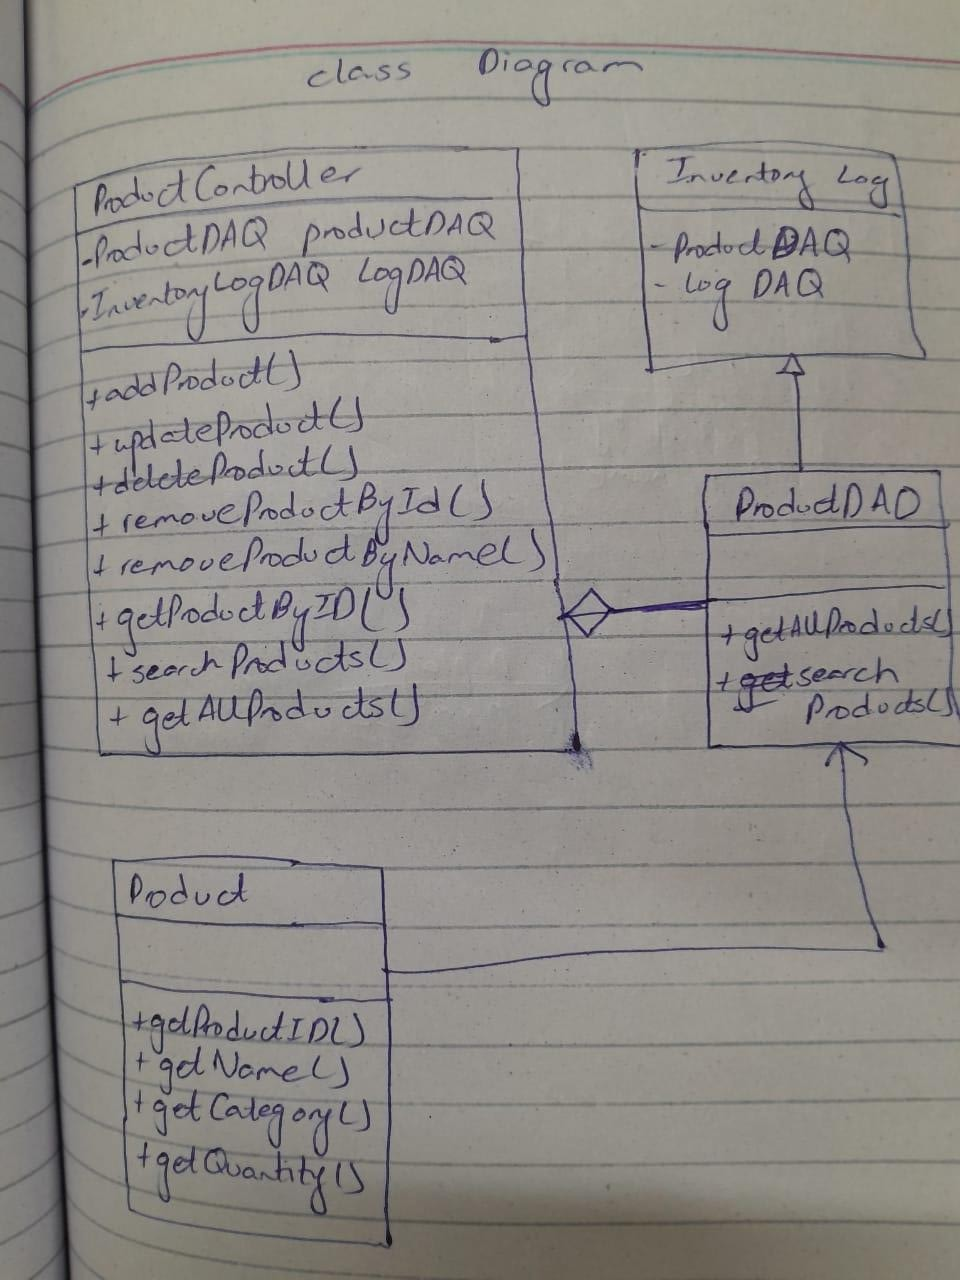 class Diagram
ProductController
-ProductDAQ productDAQ
-InventoryLogDAQ LogDAQ
+addProduct()
+updateProduct()
+deleteProduct()
+ removeProductById()
+ removeProductByName()
+getProductByID()
+ searchProducts()
+ getAllProducts()
Inventory Log
- ProductDAQ
- Log DAQ
ProductDAO
+getAllProducts()
+search
Products()
Product
+getProductID()
+getName()
+getCategory()
+getQuantity()